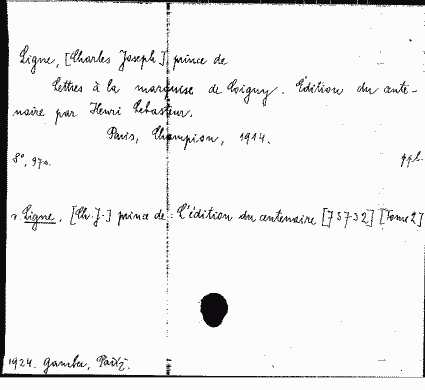 Ligne, [Charles Joseph] prince de
Lettres à la marquise de Coigny. Édition du cente-
naire par Henri Lebasteur.
Paris, Champion, 1914.
8°, 97 p. ppl.
v. Ligne, [Ch. J.] prince de: L'édition du centenaire [75732] [Tome 2]
1924. Gamber, Paříž.